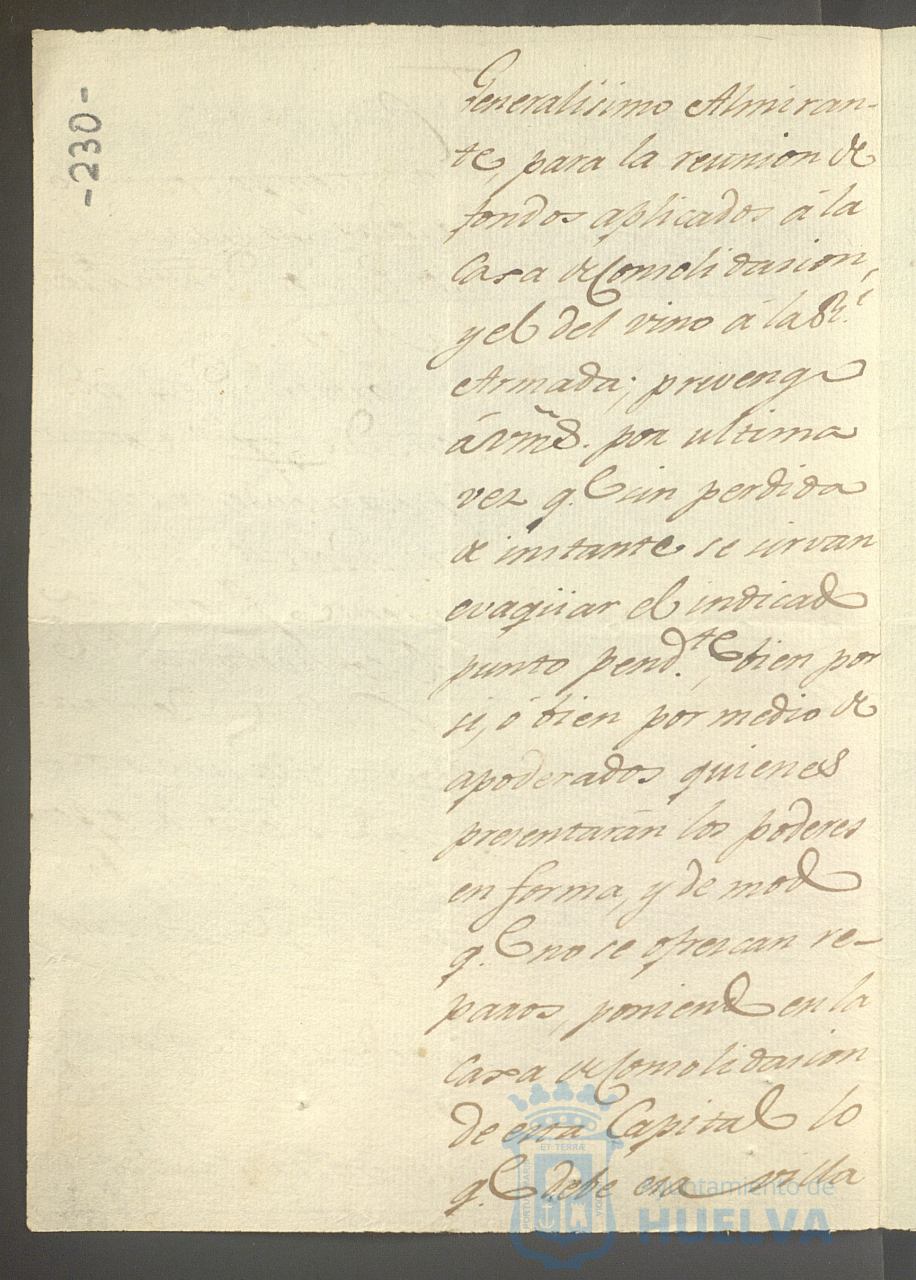 -230-
Generalisimo Almiran-
te, para la reunion de
fondos aplicados á la
Caxa de Consolidasion,
y el del vino á la Rl.
Armada; prevenga
á Vms. por ultima
vez q.e sin perdida
de instante se sirvan
evaqüar el indicado
punto pend.te, bien por
si, ó bien por medio de
apoderados quienes
presentarán los poderes
en forma, y de modo
q.e no se ofrezcan re-
paros, poniendo en la
Caxa de Consolidasion
de esta Capital lo
q.e debe esa villa
ET TERRÆ
Ayuntamiento de
HUELVA